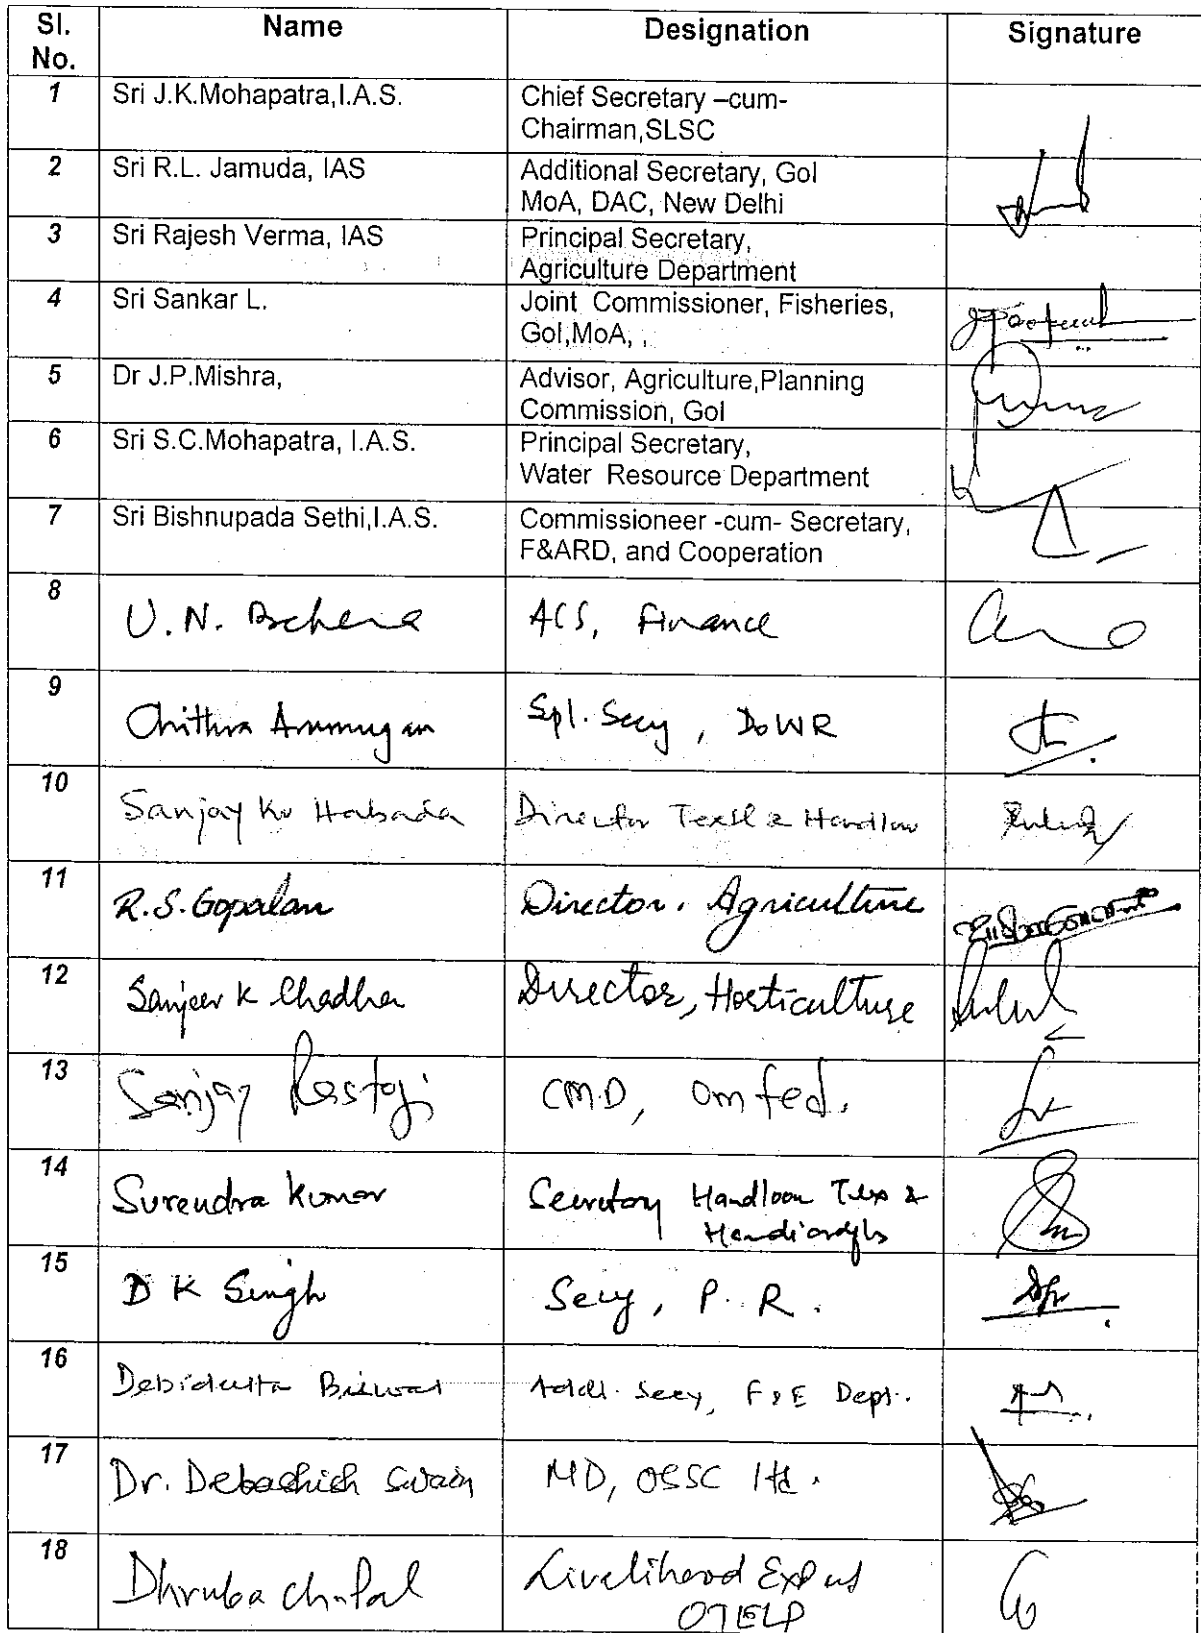 Sl. No. Name Designation Signature
1 Sri J.K.Mohapatra,I.A.S. Chief Secretary –cum-
Chairman,SLSC
2 Sri R.L. Jamuda, IAS Additional Secretary, GoI
MoA, DAC, New Delhi
3 Sri Rajesh Verma, IAS Principal Secretary,
Agriculture Department
4 Sri Sankar L. Joint Commissioner, Fisheries,
GoI,MoA, ,
5 Dr J.P.Mishra, Advisor, Agriculture,Planning
Commission, GoI
6 Sri S.C.Mohapatra, I.A.S. Principal Secretary,
Water Resource Department
7 Sri Bishnupada Sethi,I.A.S. Commissioneer -cum- Secretary,
F&ARD, and Cooperation
8 U.N. Behera ACS, Finance
9 Chithra Arumugam Spl. Secy, DoWR
10 Sanjay Ku Director Textl & Handloom
11 R.S. Gopalan Director, Agriculture
12 Sanjeev K Chadha Director, Horticulture
13 Sanjay Rastogi CMD, Omfed.
14 Surendra Kumar Secretary Handloom Tex &
Handicrafts
15 D K Singh Secy, P. R.
16 Debidutta Biswal Addl. Secy, F&E Dept.
17 Dr. Debashish Swain MD, OSSC ltd.
18 Dhruba Ch. Pal Livelihood Expert
OTELP